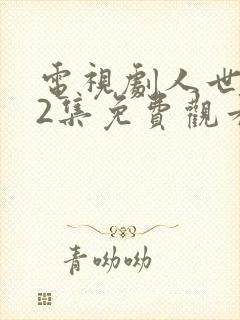 電視劇人世
2集免費觀
青呦呦